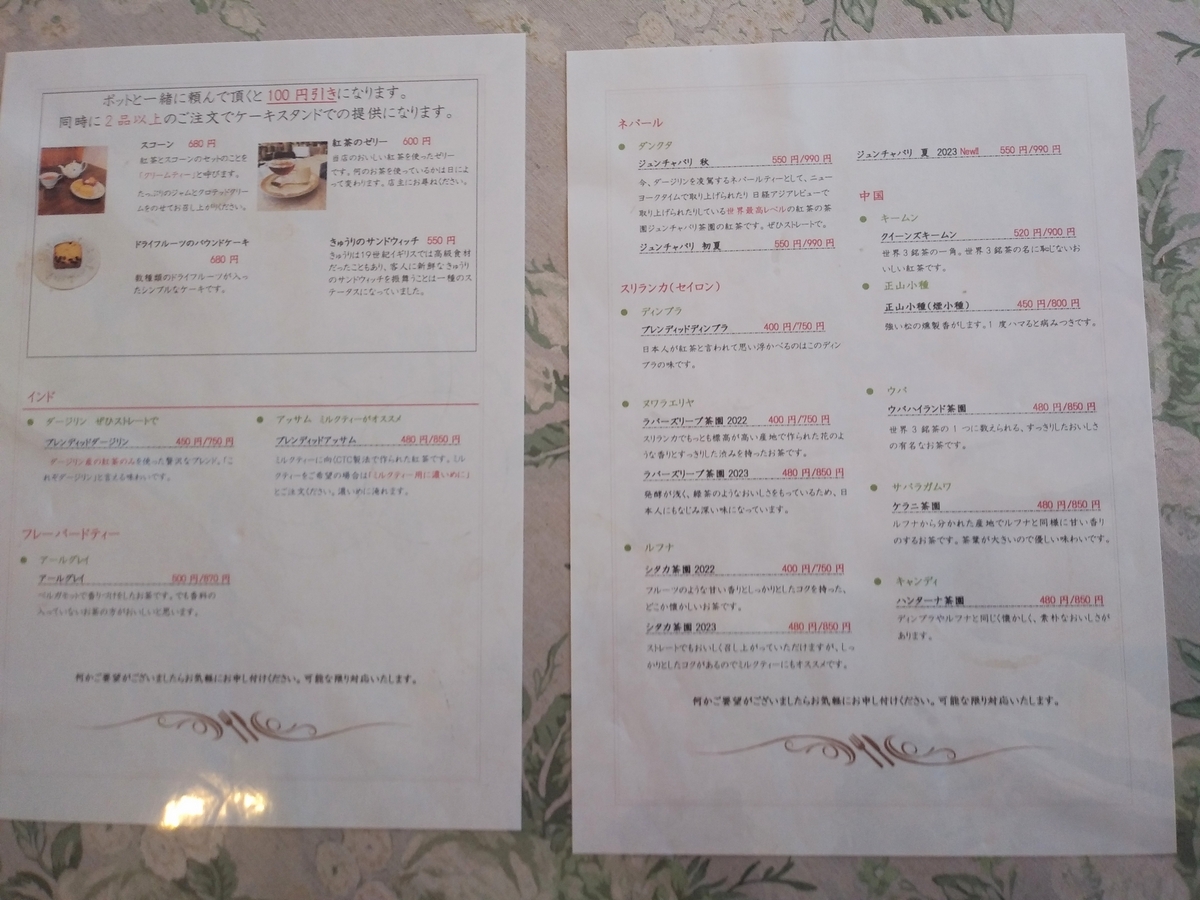 ポットと一緒に頼んで頂くと 100 円引きになります。
同時に2品以上のご注文でケーキスタンドでの提供になります。
スコーン 680 円
紅茶とスコーンのセットのことを
「クリームティー」と呼びます。
たっぷりのジャムとクロテッドクリー
ムをのせてお召し上がりください。
紅茶のゼリー 600 円
当店のおいしい紅茶を使ったゼリー
です。何のお茶を使っているかは日によ
って変わります。店主にお尋ねください。
ドライフルーツのパウンドケーキ
680 円
数種類のドライフルーツが入っ
たシンプルなケーキです。
きゅうりのサンドウィッチ 550 円
きゅうりは19世紀イギリスでは高級食材
だったこともあり、客人に新鮮なきゅうり
のサンドウィッチを振舞うことは一種のス
テータスになっていました。
インド
ダージリン ぜひストレートで
ブレンディッドダージリン 450 円/750 円
ダージリン産の紅茶のみを使った贅沢なブレンド。「こ
れぞダージリン」と言える味わいです。
アッサム ミルクティーがオススメ
ブレンディッドアッサム 480 円/850 円
ミルクティーに向くCTC製法で作られた紅茶です。ミル
クティーをご希望の場合は「ミルクティー用に濃いめに」
とご注文ください。濃いめに淹れます。
フレーバードティー
アールグレイ
アールグレイ 500 円/870 円
ベルガモットで香りづけをしたお茶です。でも香料の
入っていないお茶の方がおいしいと思います。
何かご要望がございましたらお気軽にお申し付けください。可能な限り対応いたします。
ネパール
ダンクタ
ジュンチャバリ 秋 550 円/990 円
今、ダージリンを凌駕するネパールティーとして、ニュー
ヨークタイムで取り上げられたり日経アジアレビューで
取り上げられたりしている世界最高レベルの紅茶の茶
園ジュンチャバリ茶園の紅茶です。ぜひストレートで。
ジュンチャバリ 初夏 550 円/990 円
ジュンチャバリ 夏 2023 New!! 550 円/990 円
中国
キームン
クイーンズキームン 520 円/900 円
世界3銘茶の一角。世界3銘茶の名に恥じないお
いしい紅茶です。
正山小種
正山小種(煙小種) 450 円/800 円
強い松の燻製香がします。1度ハマると病みつきです。
スリランカ(セイロン)
ディンブラ
ブレンディッドディンブラ 400 円/750 円
日本人が紅茶と言われて思い浮かべるのはこのディン
ブラの味です。
ヌワラエリヤ
ラバーズリープ茶園 2022 400 円/750 円
スリランカでもっとも標高が高い産地で作られた花のよ
うな香りとすっきりした渋みを持ったお茶です。
ラバーズリープ茶園 2023 480 円/850 円
発酵が浅く、緑茶のようなおいしさをもっているため、日
本人にもなじみ深い味になっています。
ルフナ
シタカ茶園 2022 400 円/750 円
フルーツのような甘い香りとしっかりとしたコグを持った、
どこか懐かしいお茶です。
シタカ茶園 2023 480 円/850 円
ストレートでもおいしく召し上がっていただけますが、しっ
かりとしたコグがあるのでミルクティーにもオススメです。
ウバ
ウバハイランド茶園 480 円/850 円
世界3銘茶の1つに数えられる、すっきりしたおいしさ
の有名なお茶です。
サバラガムワ
ケラニ茶園 480 円/850 円
ルフナから分かれた産地でルフナと同様に甘い香り
のするお茶です。茶葉が大きいので優しい味わいです。
キャンディ
ハンターナ茶園 480 円/850 円
ディンブラやルフナと同じく懐かしく、素朴なおいしさが
あります。
何かご要望がございましたらお気軽にお申し付けください。可能な限り対応いたします。